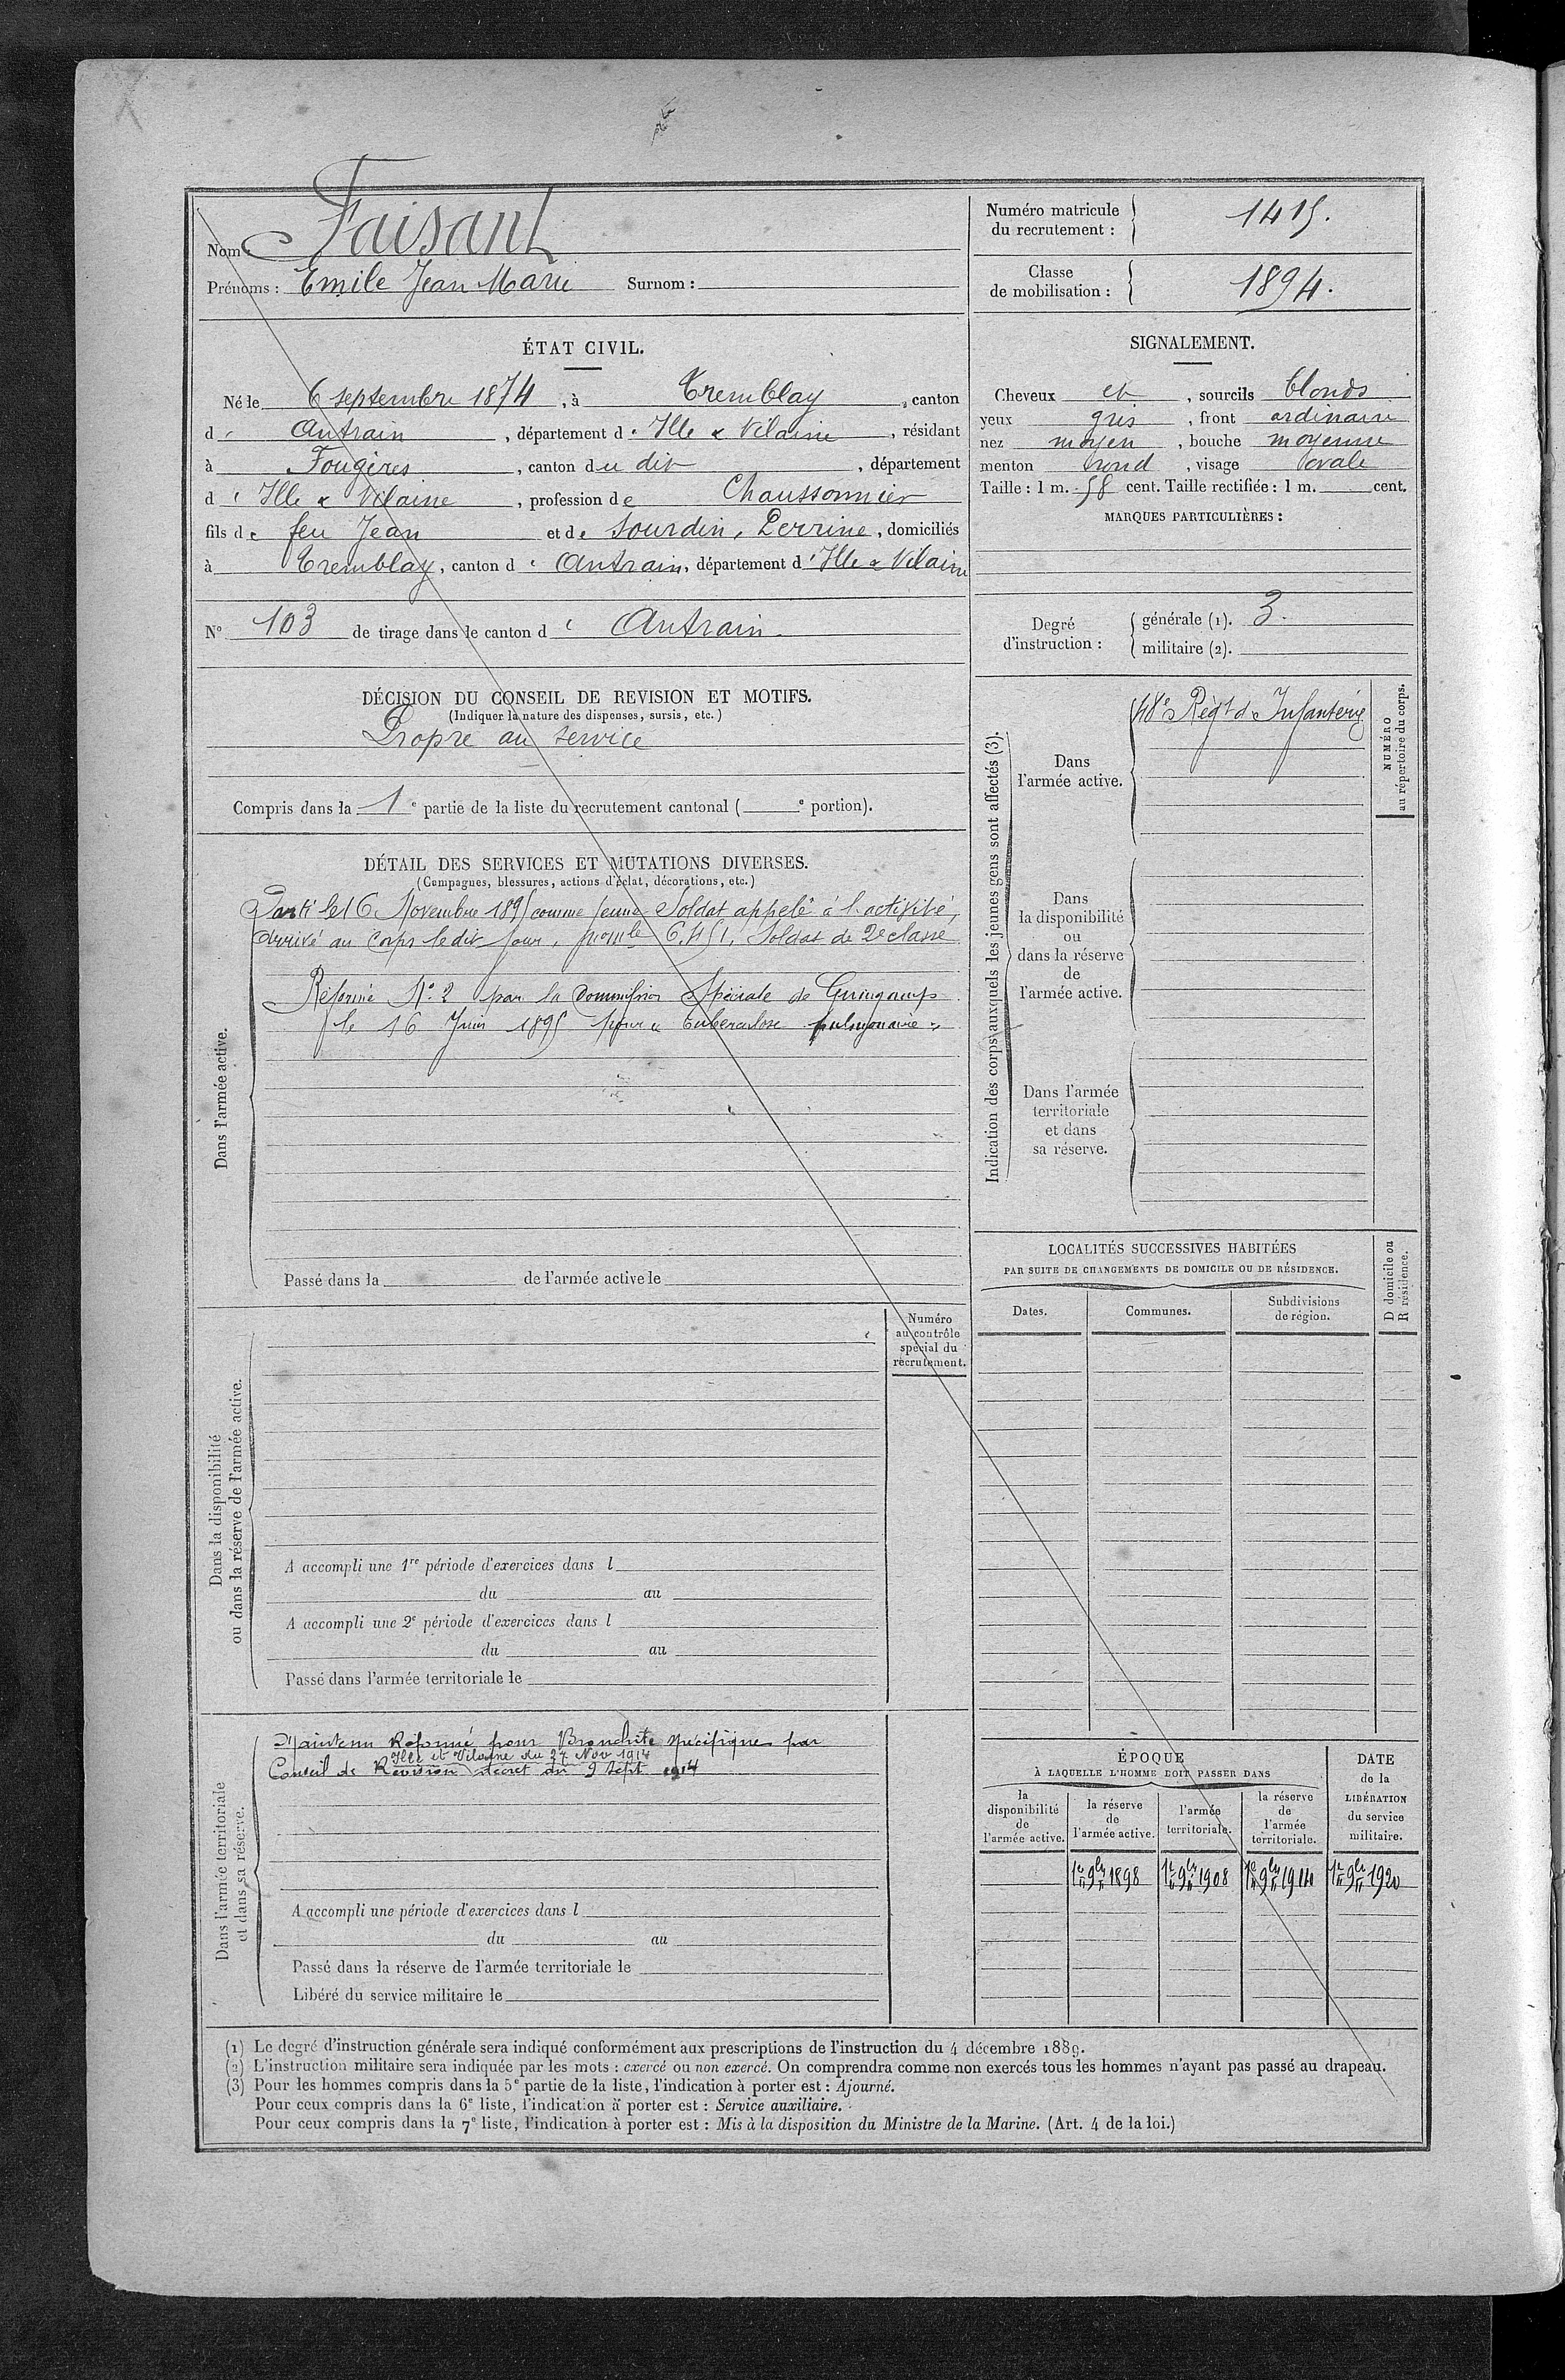 Nom : Faisant
Prénoms : Emile Jean Marie Surnom :
Numéro matricule du recrutement : 1415.
Classe de mobilisation : 1894.
ÉTAT CIVIL.
Né le 6 septembre 1874, à Tremblay, canton
d' Antrain, département d' Ille & Vilaine, résidant
à Fougères, canton du dit, département
d' Ille & Vilaine, profession de Chaussonnier
fils de feu Jean et de Sourdin, Perrine, domiciliés
à Tremblay, canton d' Antrain, département d' Ille & Vilaine
N° 103 de tirage dans le canton d' Antrain.
SIGNALEMENT.
Cheveux et, sourcils blonds
yeux gris, front ordinaire
nez moyen, bouche moyenne
menton rond, visage ovale
Taille : 1 m. 58 cent. Taille rectifiée : 1 m. cent.
MARQUES PARTICULIÈRES :
Degré d'instruction :
générale (1). 3.
militaire (2).
DÉCISION DU CONSEIL DE REVISION ET MOTIFS.
(Indiquer la nature des dispenses, sursis, etc.)
Propre au service
Compris dans la 1e partie de la liste du recrutement cantonal ( e portion).
DÉTAIL DES SERVICES ET MUTATIONS DIVERSES.
(Campagnes, blessures, actions d'éclat, décorations, etc.)
Dans l'armée active.
Parti le 16 Novembre 1895 comme jeune Soldat appelé à l'activité,
Arrivé au Corps le dit jour, 6.451, Soldat de 2e classe
Réformé N° 2 par la Commission Spéciale de Guingamp
le 16 Juin 189 pour « tuberculose pulmonaire »
Passé dans la de l'armée active le
Indication des corps auxquels les jeunes gens sont affectés (3).
NUMÉRO
au répertoire du corps.
Dans
l'armée active.
48e Régt d'Infanterie
Dans
la disponibilité
ou
dans la réserve
de
l'armée active.
Dans l'armée
territoriale
et dans
sa réserve.
LOCALITÉS SUCCESSIVES HABITÉES
PAR SUITE DE CHANGEMENTS DE DOMICILE OU DE RÉSIDENCE.
D domicile ou
R résidence.
Dates.
Communes.
Subdivisions
de région.
Dans la disponibilité
ou dans la réserve de l'armée active.
Numéro
au contrôle
spécial du
recrutement.
A accompli une 1re période d'exercices dans l
du au
A accompli une 2e période d'exercices dans l
du au
Passé dans l'armée territoriale le
Dans l'armée territoriale
et dans sa réserve.
Maintenu Réformé pour Bronchite spécifique par
Ille et Vilaine du 27 Nov 1914
Conseil de Révision décret du 9 Sept 1914
A accompli une période d'exercices dans l
du au
Passé dans la réserve de l'armée territoriale le
Libéré du service militaire le
ÉPOQUE
À LAQUELLE L'HOMME DOIT PASSER DANS
la
disponibilité
de
l'armée active.
la réserve
de
l'armée active.
l'armée
territoriale.
la réserve
de
l'armée
territoriale.
DATE
de la
LIBÉRATION
du service
militaire.
1er 9bre 1898
1er 9bre 1908
1er 9bre 1914
1er 9bre 1920
(1) Le degré d'instruction générale sera indiqué conformément aux prescriptions de l'instruction du 4 décembre 1889.
(2) L'instruction militaire sera indiquée par les mots : exercé ou non exercé. On comprendra comme non exercés tous les hommes n'ayant pas passé au drapeau.
(3) Pour les hommes compris dans la 5e partie de la liste, l'indication à porter est : Ajourné.
Pour ceux compris dans la 6e liste, l'indication à porter est : Service auxiliaire.
Pour ceux compris dans la 7e liste, l'indication à porter est : Mis à la disposition du Ministre de la Marine. (Art. 4 de la loi.)